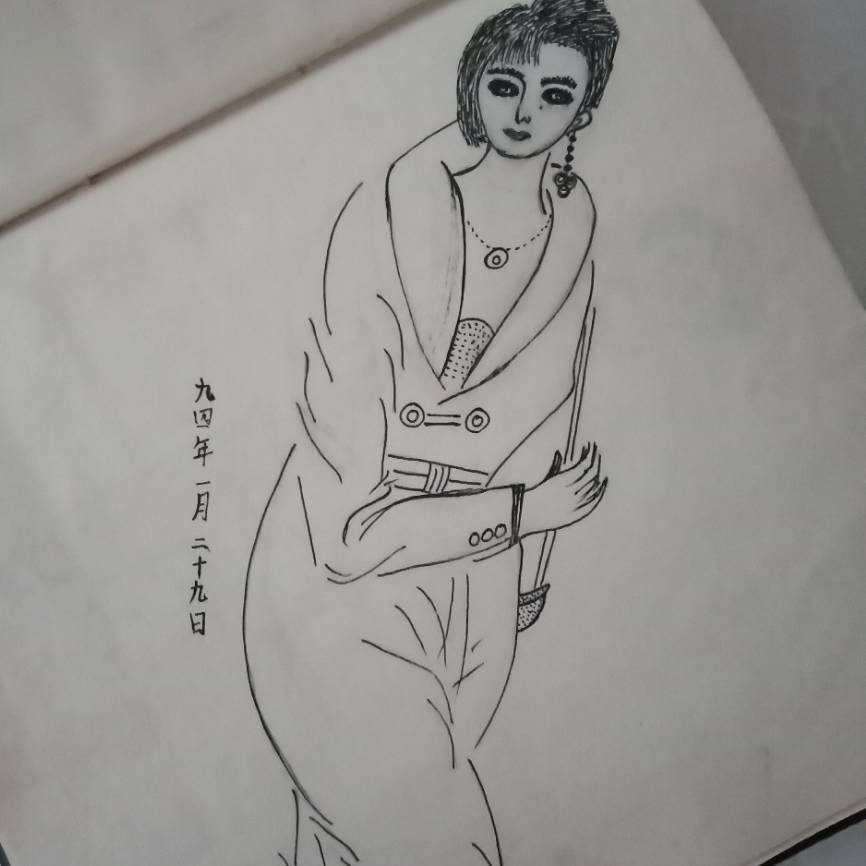 九四年一月二十九日